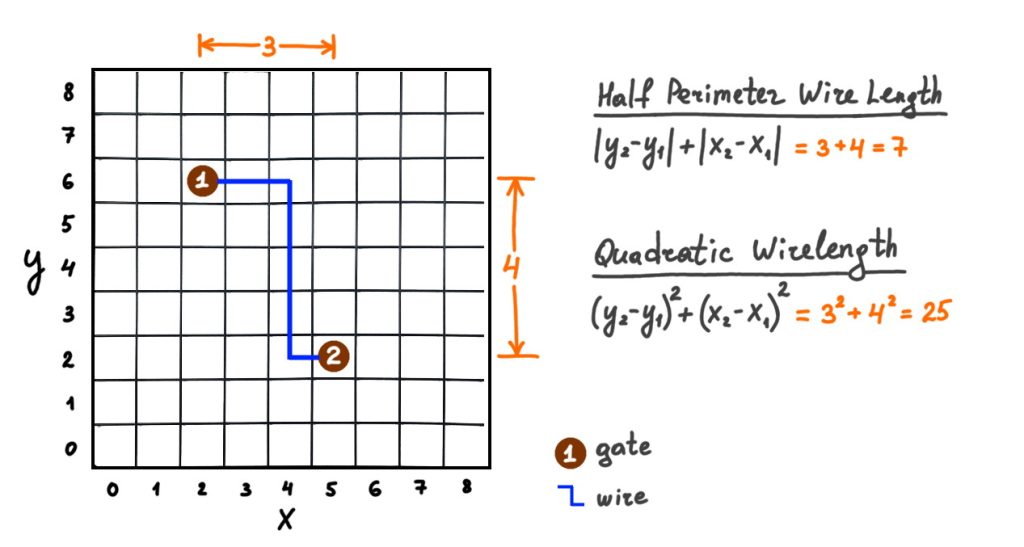 3
8
7
6
5
4
3
2
1
0
y
1
2
4
0 1 2 3 4 5 6 7 8
X
Half Perimeter Wire Length
|y₂-y₁|+|x₂-x₁| = 3+4=7
Quadratic Wirelength
(y₂-y₁)²+(x₂-x₁)² = 3²+4²= 25
1 gate
wire